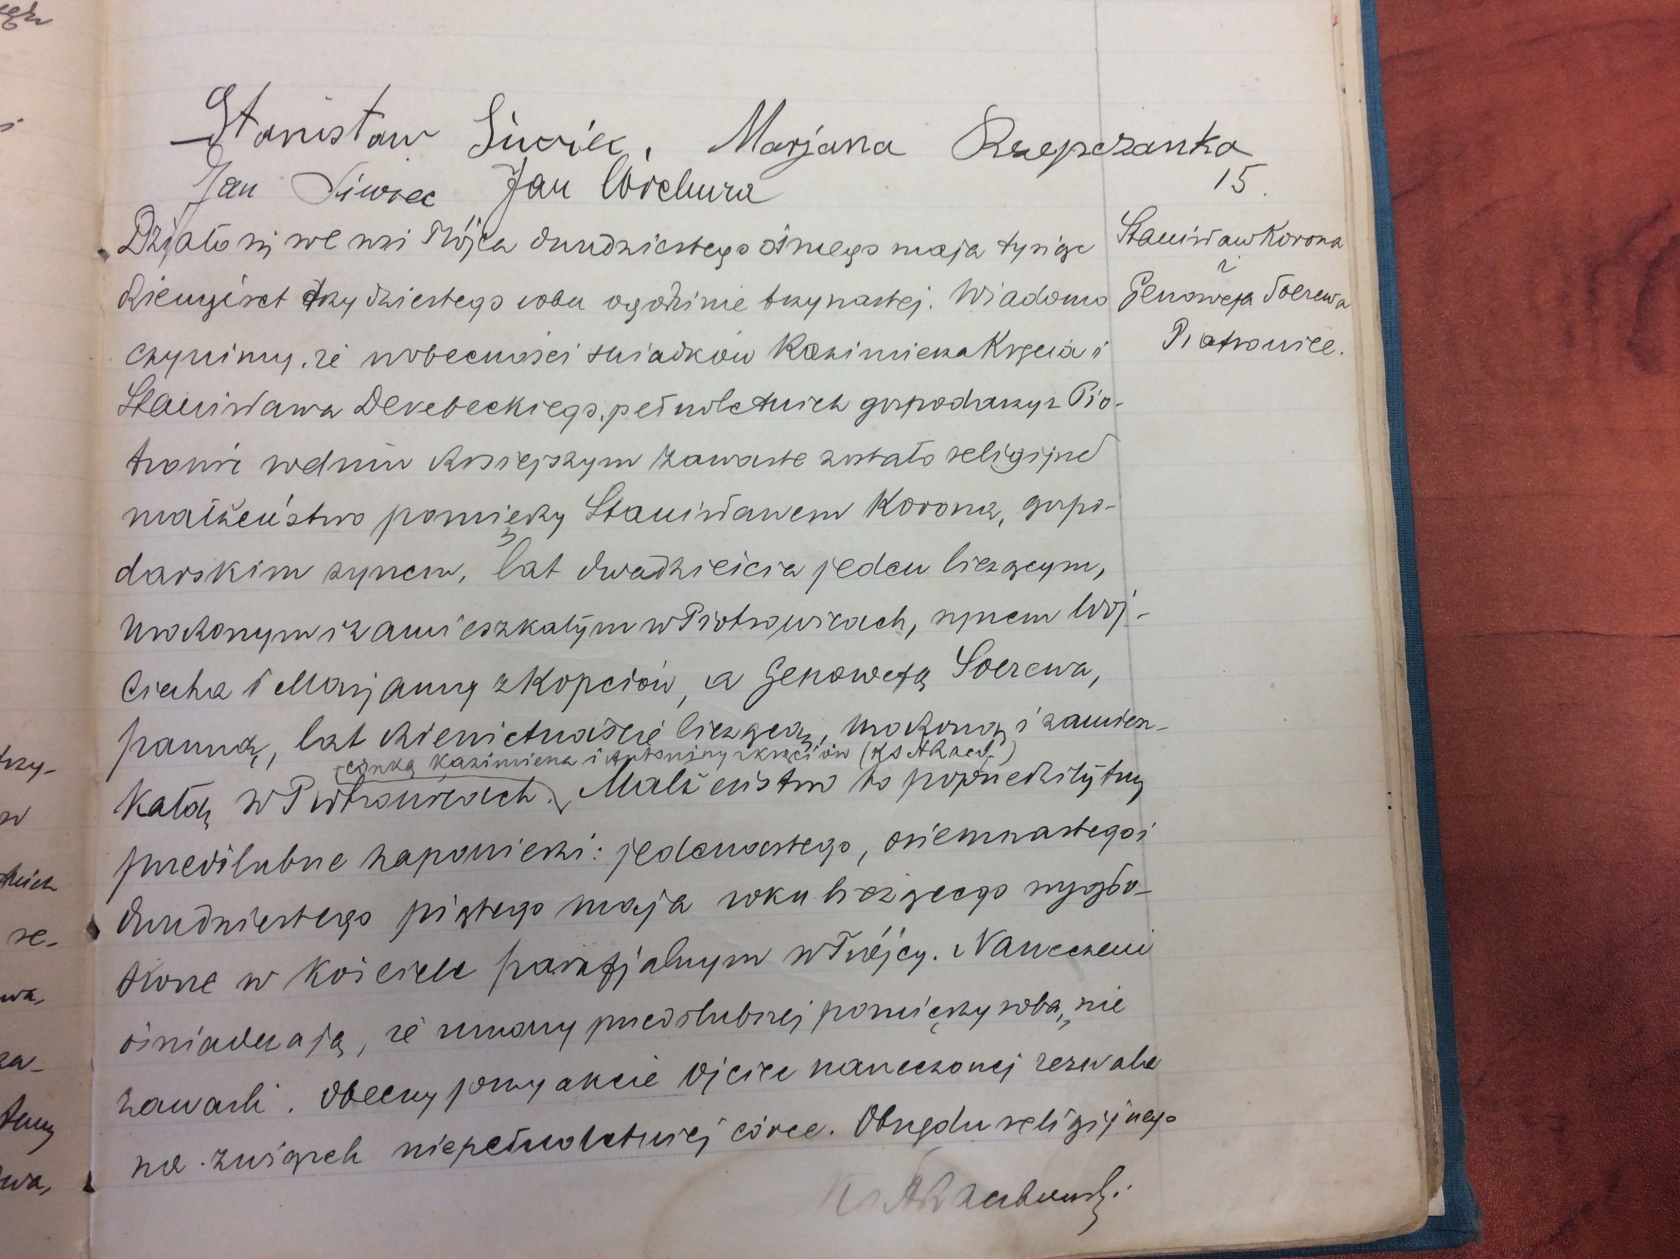 Stanisław Siwiec, Marjana Rzepczanka
Jan Siwiec Jan Wochura
15.
Stanisław Korona
i
Genowefa Soczewa
Piotrowice.
Działo się we wsi Trójca dwudziestego ósmego maja tysiąc
dziewięćset trzydziestego roku o godzinie trzynastej. Wiadomo
czynimy, że w obecności świadków Kazimierza Kręcia i
Stanisława Derebeckiego, pełnoletnich gospodarzy z Pio-
trowic w dniu dzisiejszym zawarte zostało religijne
małżeństwo pomiędzy Stanisławem Korona, gospo-
darskim synem, lat dwadzieścia jeden liczącym,
urodzonym i zamieszkałym w Piotrowicach, synem Woj-
ciecha i Marjanny z Kopciów, a Genowefą Soczewa,
panną, lat dziewiętnaście liczącą, urodzoną i zamiesz-
córką Kazimierza i Antoniny z Kręciów
kałą w Piotrowicach. Małżeństwo to poprzedziły trzy
przedślubne zapowiedzi: jedenastego, osiemnastego i
dwudziestego piątego maja roku bieżącego wygło-
szone w kościele parafjalnym w Trójcy. Nowożeńcy
oświadczają, że umowy przedślubnej pomiędzy sobą nie
zawarli. Obecny przy akcie ojciec narzeczonej zezwala
na związek niepełnoletniej córce. Obrzędu religijnego